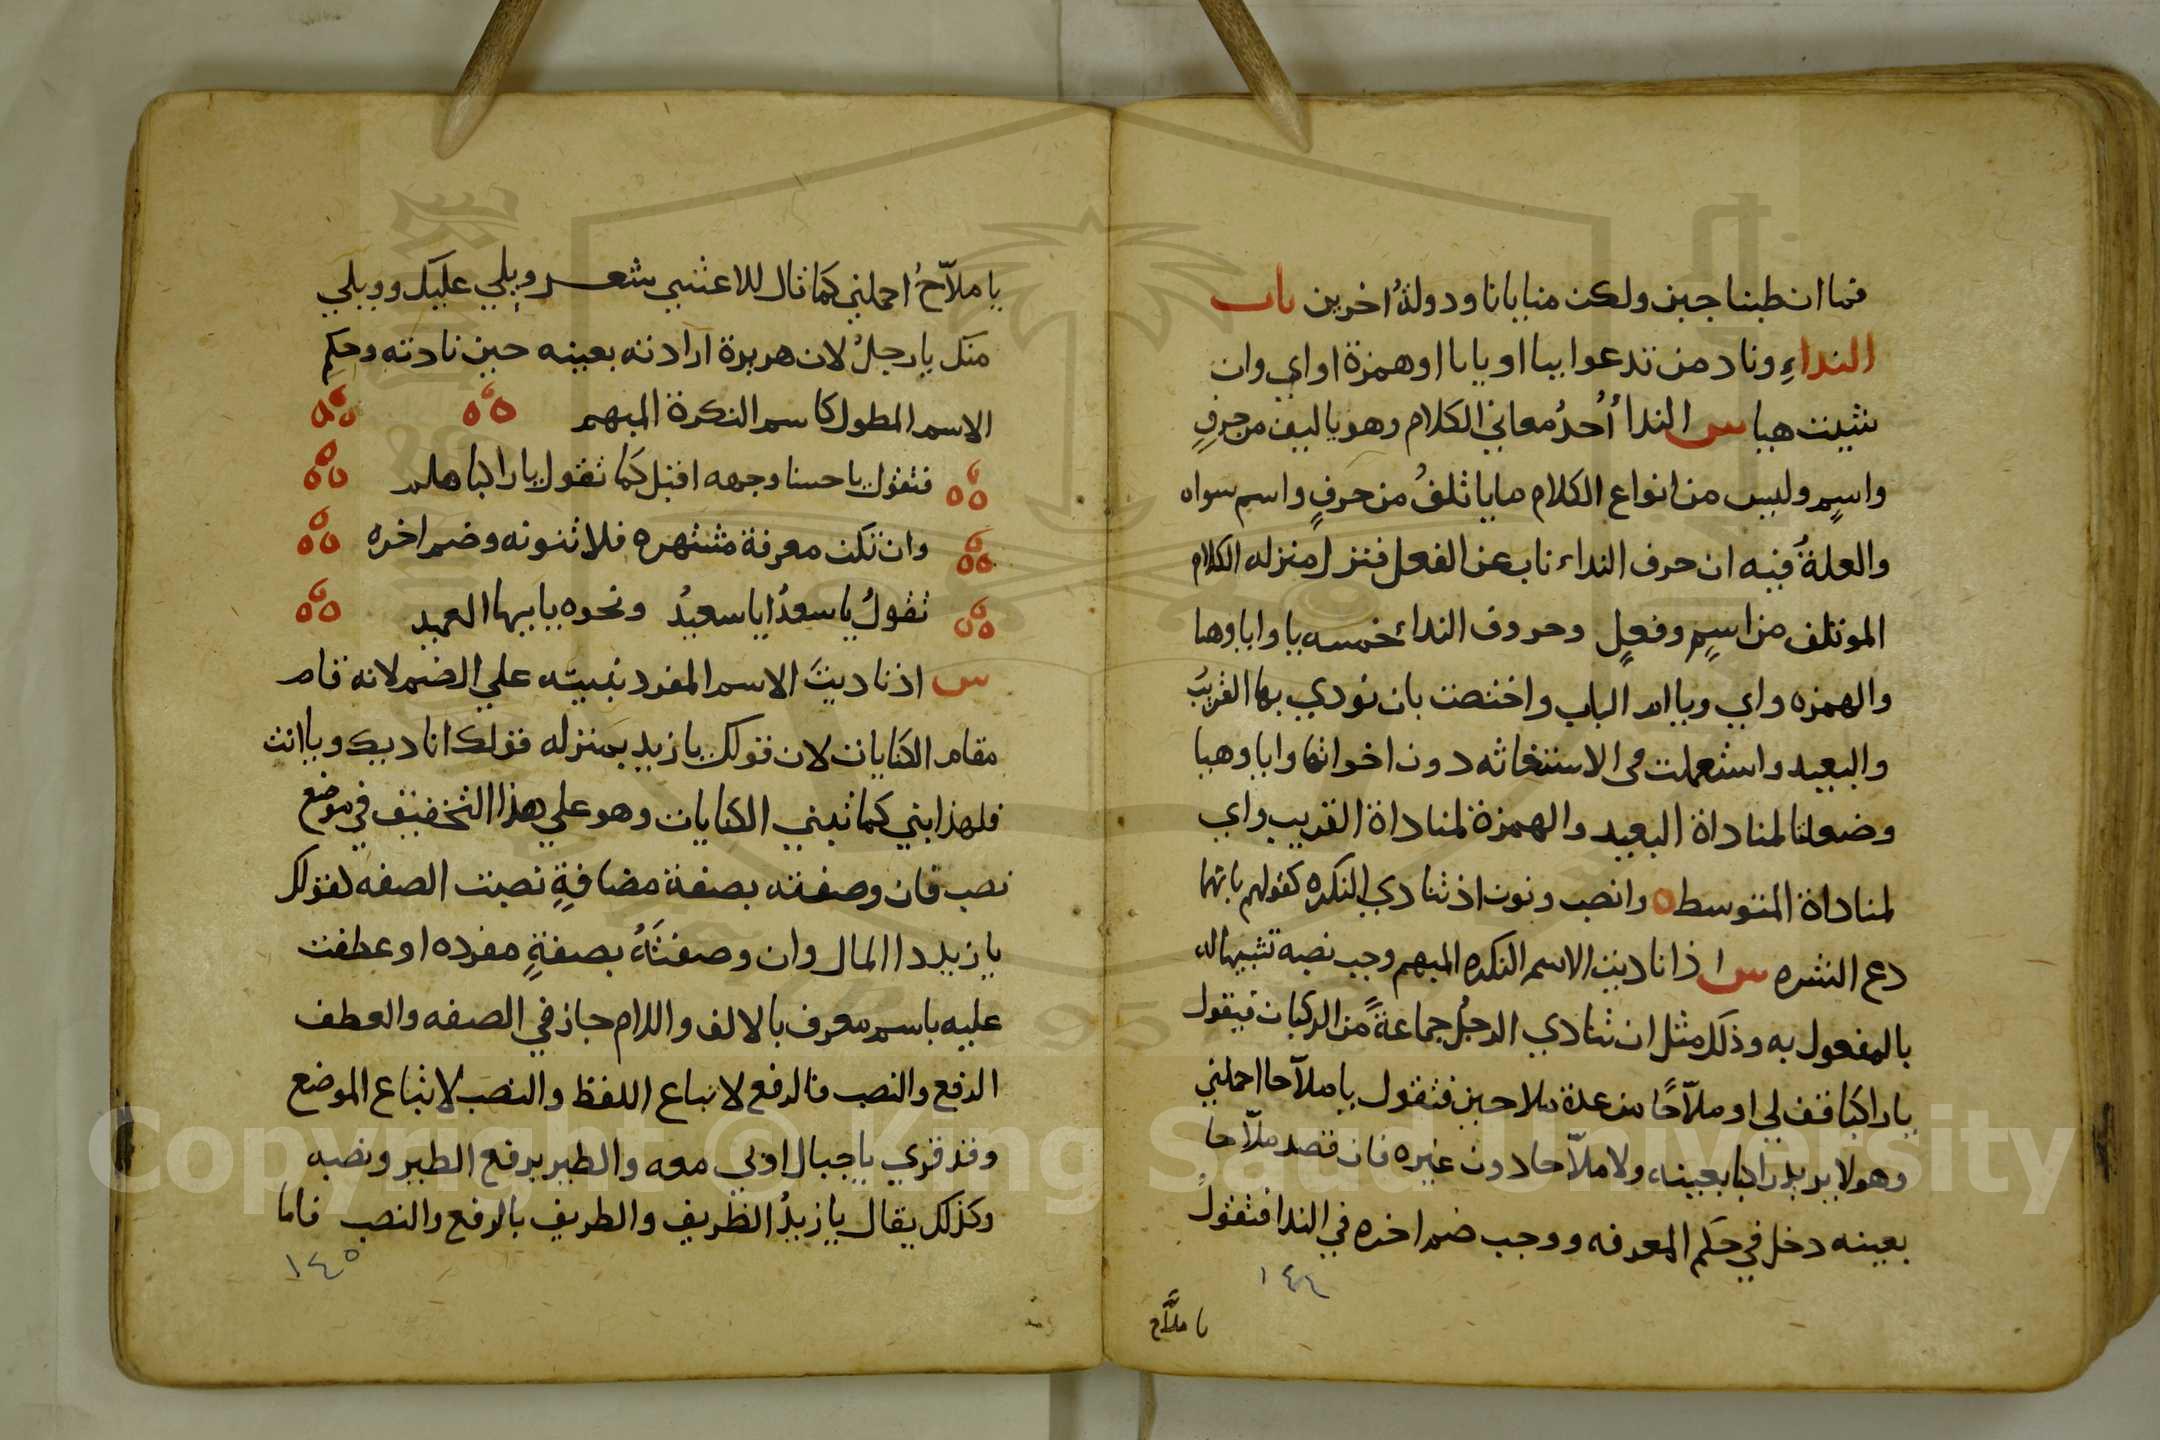 فما ان طبنا جبن ولكن منايانا ودولة اخرين باب
النداءِ وناد من تدعوا بيا او بايا او همزة او اي وان
شيت هيا س الندا أحدُ معاني الكلام وهو ياليف من حرفٍ
واسمٍ وليس من انواع الكلام ما ياتلفُ من حرفٍ واسم سواه
والعلةُ فيه ان حرف النداء ناب عن الفعل فنزل منزله الكلام
الموتلف من اسمٍ وفعلٍ وحروف النداء خمسه يا وايا وهيا
والهمزه واي ويا ام الباب واختصت بان نودي بها القريبُ
والبعيد واستعملت في الاستغاثه دون اخواتها وايا وهيا
وضعلنا لمناداة البعيد والهمزة لمناداة القريب واي
لمناداة المتوسط ه وانصب ونون اذ تنادي النكره كقولهم يا نهما
دع الشره س اذا ناديت الاسم النكره المبهم وجب نصبه تشبيها له
بالمفعول به وذلك مثل ان تنادي الرجلُ جماعةً من الركبان فيقول
يا راكبا قف لي او ملّاحًا من عدة ملاحين فتقول يا ملّاحا احملني
وهو لا يريد راكبا بعينه، ولا ملّاحا دون غيره فان قصد ملّاحا
بعينه دخل في حكم المعرفه ووجب ضم اخره في الندا فتقولُ
١٤٤
يا ملَّاح
يا ملّاحُ احملني كما قال للاعشي شعر ويلي عليك وويلي
منك يا رجلُ لان هريرة ارادته بعينه حين نادته وحكمِ
الاسم المطول كاسم النكرة المبهم
فتقول يا حسنا وجهه اقبل كما تقول يا راكبا هلم
وان تكن معرفة مشتهره فلا تنونه وضم اخره
تقولُ يا سعدُ ايا سعيدُ ونحوه يا ايها العميد
س اذ ناديتَ الاسم المفرد بنيته علي الضم لانه قام
مقام الكنايات لان قولك يا زيد بمنزله قولك اناديك ويا انت
فلهذا بني كما تبني الكنايات وهو علي هذا التخفيف في موضع
نصب فان وصفته بصفة مضافةٍ نصبت الصفه كقولك
يا زيد ذا المال وان وصفتَهُ بصفةٍ مفرده او عطفت
عليه باسم معرف بالالف واللام جاز في الصفه والعطف
الرفع والنصب فالرفع لاتباع اللفظ والنصب لاتباع الموضع
وقد قري يا جبال اوبي معه والطير برفع الطير ونصبه
وكذلك يقال يا زيدُ الظريف والظريف بالرفع والنصب فاما
١٤٥